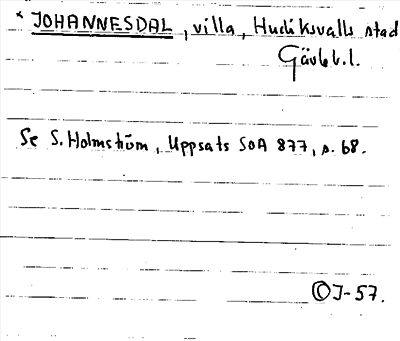 * JOHANNESDAL, villa, Hudiksvalls stad
Gävleb.l.
Se S. Holmström, Uppsats SOA 877, s. 68.
© J-57.